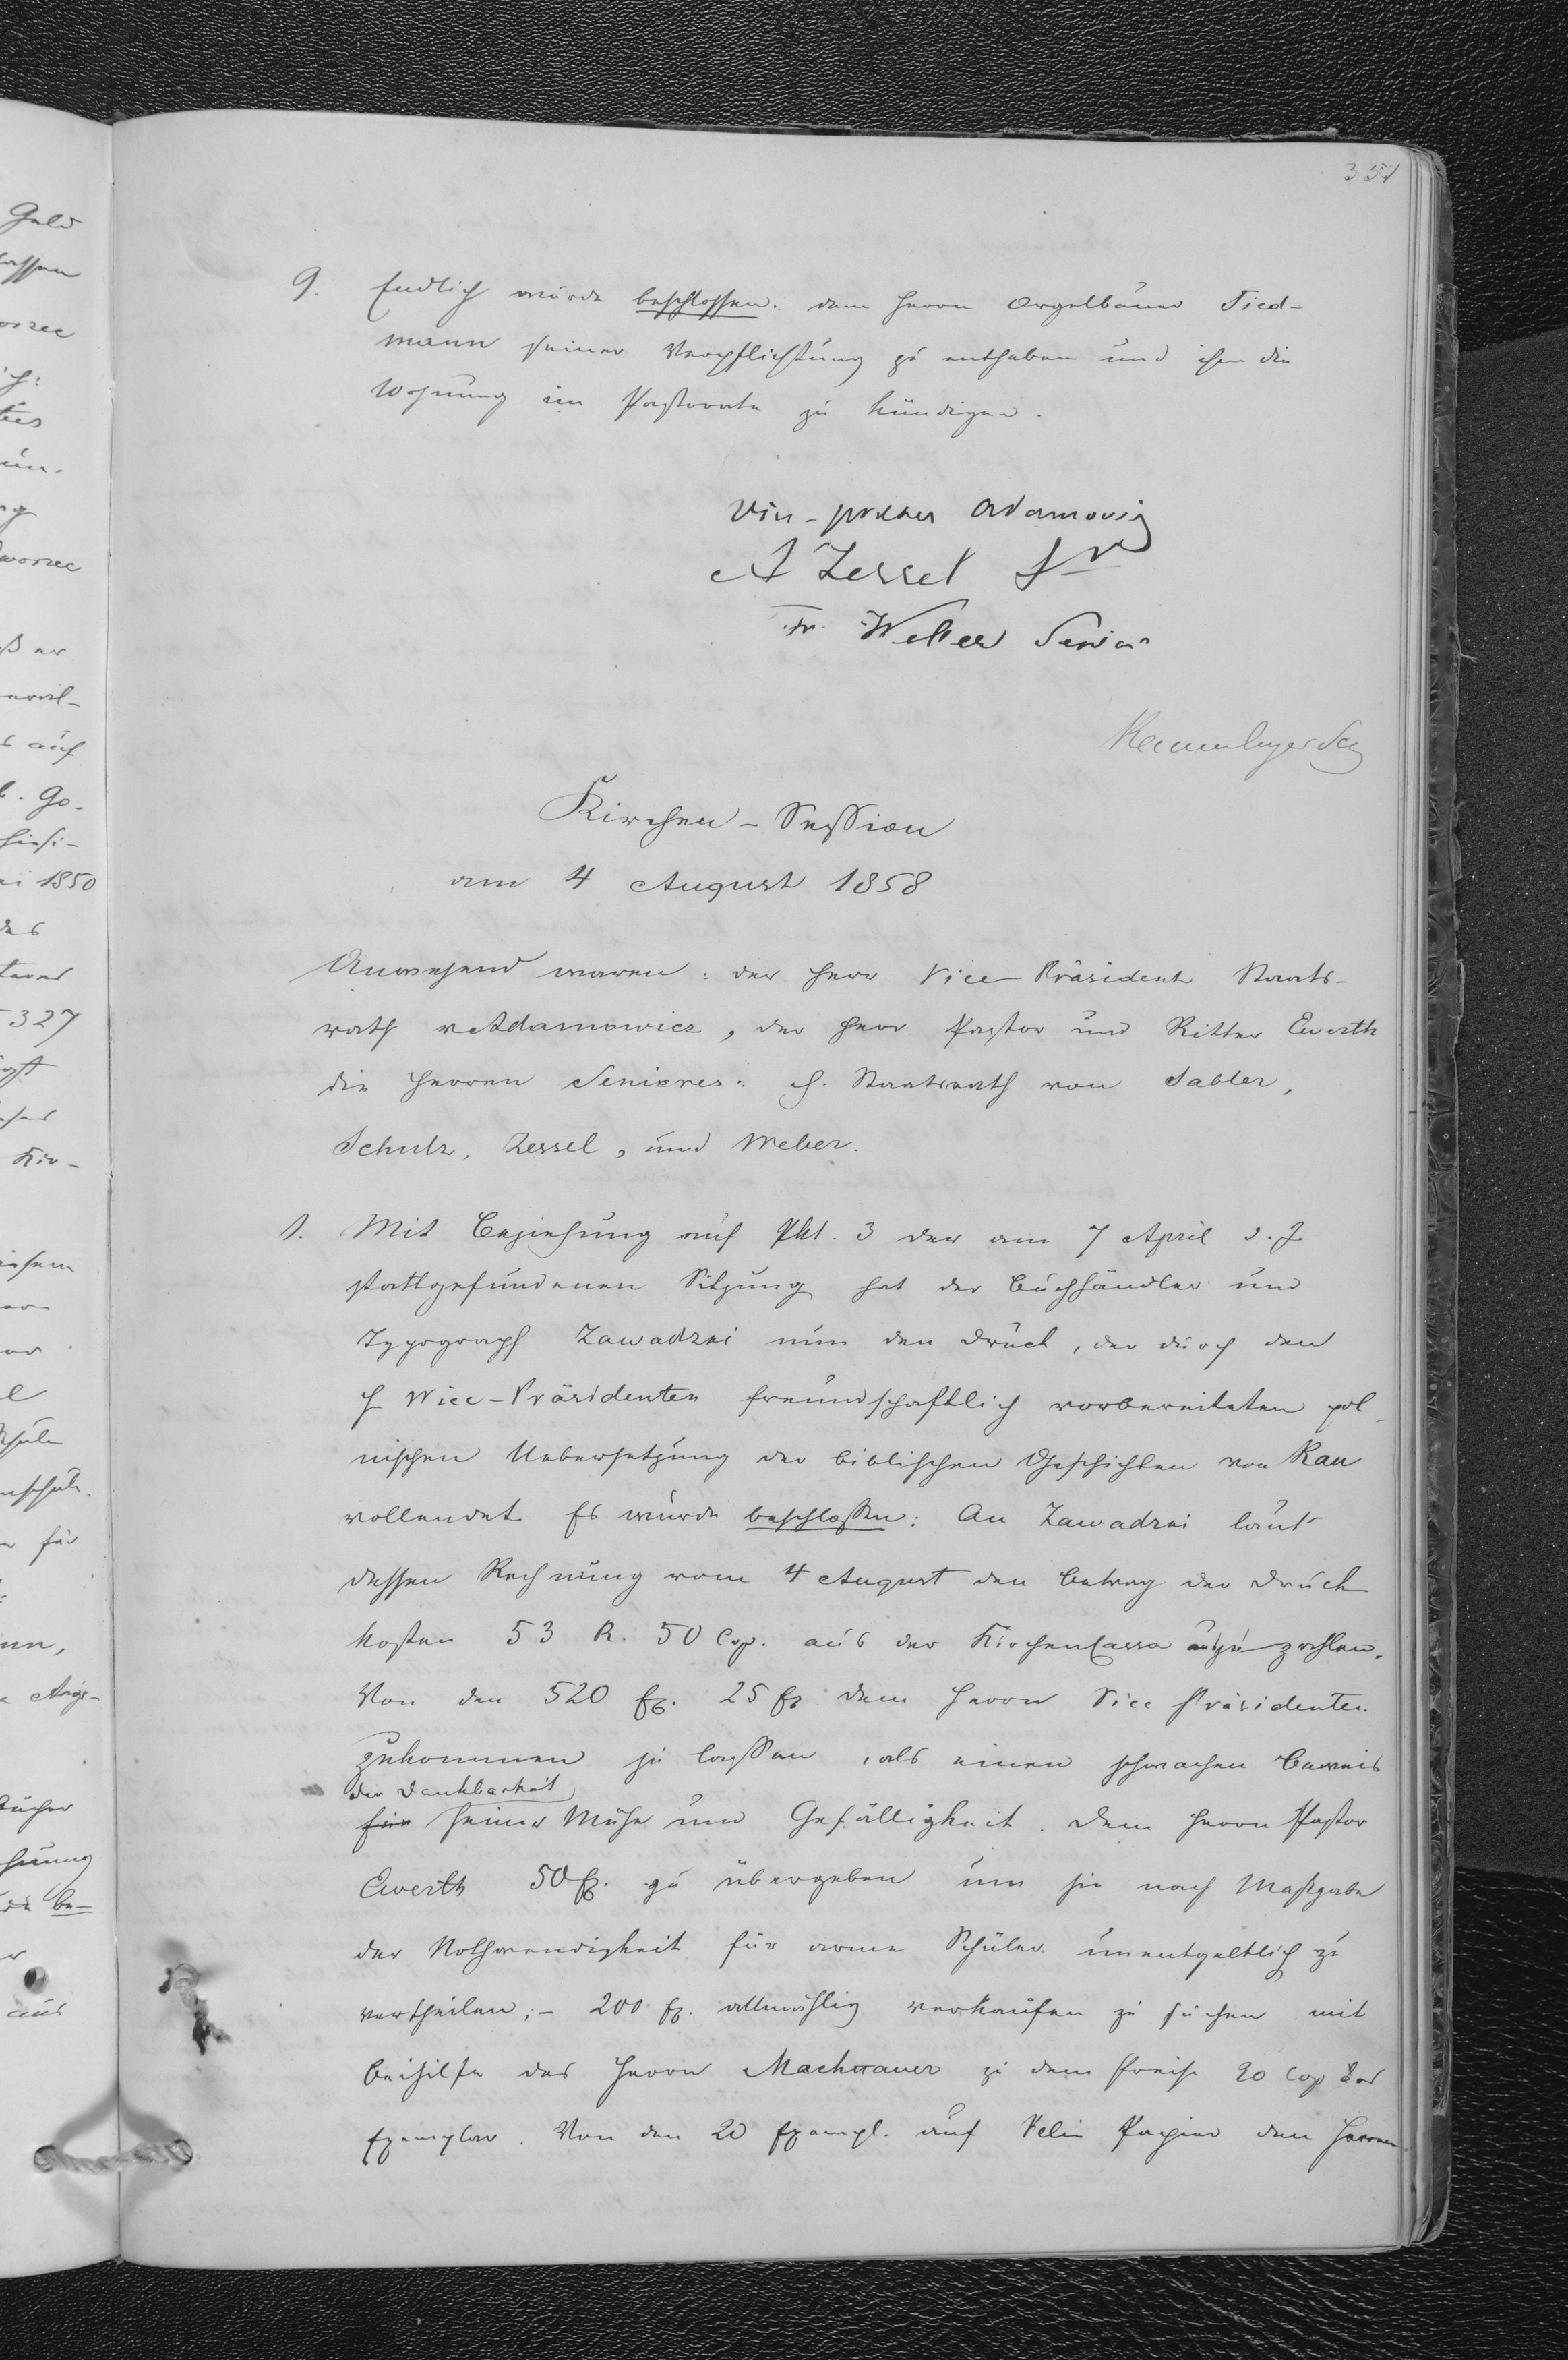 351
9. Endlich wurde beschlossen: dem Herrn Orgelbauer Tied-
mann seiner Verpflichtung zu entheben und ihm die
Wohnung im Pastorate zu kündigen.
Vice-preses Adamowicz
A Zessel Sr
Fr. Weber Senior
Kirchen-Session
am 4 August 1858
Anwesend waren: der Herr Vice Präsident Staats-
rath v Adamowicz, der Herr Pastor und Ritter Ewerth
die Herren Seniores: H. Staatsrath von Sabler,
Schulz, Zessel, und Weber.
1. Mit Beziehung auf Pkt. 3 der am 7 April d. J.
stattgefundenen Sitzung hat der Buchhändler und
Typograph Zawadzki nun den Druck, der durch den
H Vice-Präsidenten freundschaftlich vorbereiteten pol-
nischen Uebersetzung der biblischen Geschichten von Rau
vollendet. Es wurde beschloßen: An Zawadzki laut
dessen Rechnung vom 4 August den Betrag der Druck
kosten 53 R. 50 Cop. aus der KirchenCassa zahlen.
Von den 520 Ex. 25 Ex dem Herrn Vice Präsidenten
zukommen zu laßen, als einen schwachen Beweis
der Dankbarkeit
für seiner Mühe und Gefälligkeit. Dem Herrn Pastor
Ewerth 50 Ex. zu übergeben um sie nach Maßgabe
der Nothwendigkeit für arme Schüler unentgeltlich zu
vertheilen; – 200 Ex. allmählig verkaufen zu suchen mit
Beihilfe des Herrn Machnauer zu dem Preise 20 Cop das
Exemplar. Von den 20 Exempl. auf Velin Papier den Herren